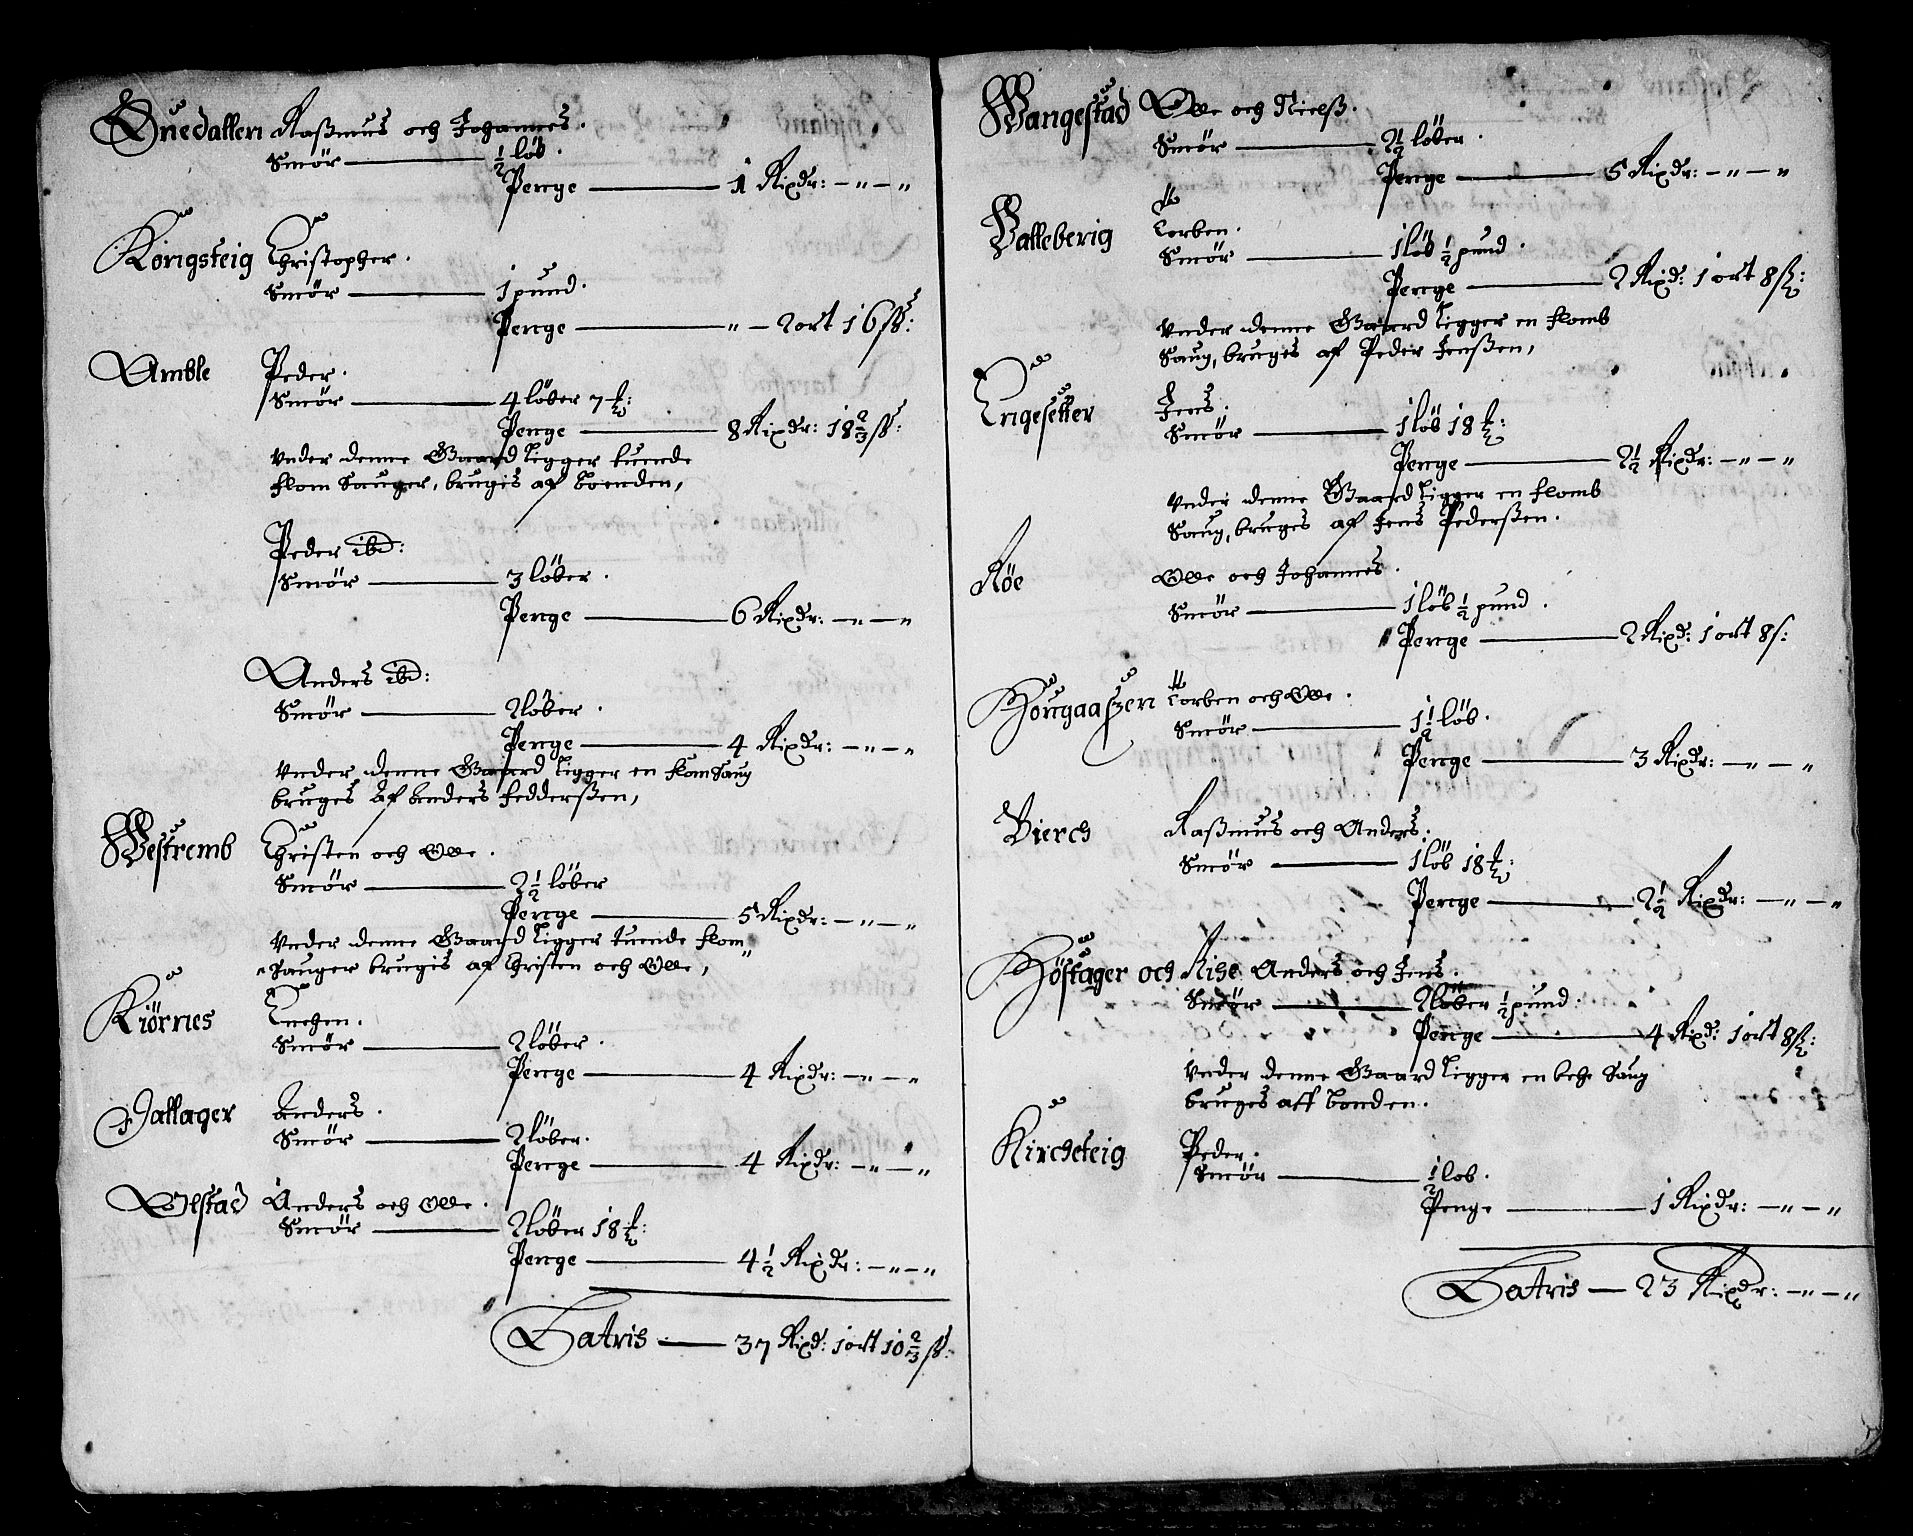 Quedallen Raßmus och Johannes.
Smør — ½ løb.
Penge — 1 Rixdr: — " — "
Kongsteig Christopher.
Smør — 1 pund.
Penge — " — 2 ort 16 ß:
Amble Peder.
Smør — 4 løber 7 ℔:
Penge — 8 Rixdr: 18⅔ ß:
Vnder denne Gaard ligger tuende
flom Sauger, brugis af bønden,
Peder ibd:
Smør — 3 løber.
Penge — 6 Rixdr: — " — "
Anders ibd:
Smør — 2 løber.
Penge — 4 Rixdr: — " — "
Vnder denne Gaard ligger en flom Saug
bruges af Anders Feddersßen,
Westremb Christen och Olle.
Smør — 2½ løber
Penge — 5 Rixdr: — " — "
Vnder denne Gaard ligger tuende flom
Sauger brugis af Christen och Olle,
Kiørnes Enchen.
Smør — 2 løber.
Penge — 4 Rixdr: — " — "
Dallager Anders.
Smør — 2 løber.
Penge — 4 Rixdr: — " — "
Olstad Anders och Olle.
Smør — 2 løber 18 ℔:
Penge — 4½ Rixdr: — " — "
Latris — 37 Rixd: 1 ort 10⅔ ß:
Wangestad Olle och Nielß.
Smør — 2½ løber.
Penge — 5 Rixdr: — " — "
Valleberig Torben.
Smør — 1 løb ½ pund.
Penge — 2 Rixd: 1 ort 8 ß:
Vnder denne Gaard ligger en flomb
Saug, bruges af Peder Jenßen,
Engesetter Jens.
Smør — 1 løb 18 ℔:
Penge — 2½ Rixdr: — " — "
Vnder denne Gaard ligger en flomb
Saug, bruges af Jens Pederßen.
Røe Olle och Johannes.
Smør — 1 løb ½ pund.
Penge — 2 Rixd: 1 ort 8 s:
Hougaaßen Torben och Olle.
Smør — 1½ løb.
Penge — 3 Rixdr: — " — "
Bierch Raßmus och Anders.
Smør — 1 løb 18 ℔:
Penge — 2½ Rixdr: — " — "
Høstager och Rise Anders och Jens.
Smør — 2 løber ½ pund.
Penge — 4 Rixd: 1 ort 8 ß:
Vnder denne Gaard ligger en beche Saug
bruges aff bonden.
Kircheteig Peder.
Smør — ½ løb.
Penge — 1 Rixdr: — " — "
Latris — 23 Rixdr: — " — "